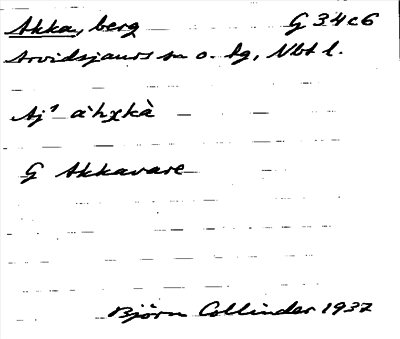 Akka, berg G 34c6
Arvidsjaurs sn o. lg, Nbt l.
Aj¹ àˈhχkà
G Akkavare
Björn Collinder 1937